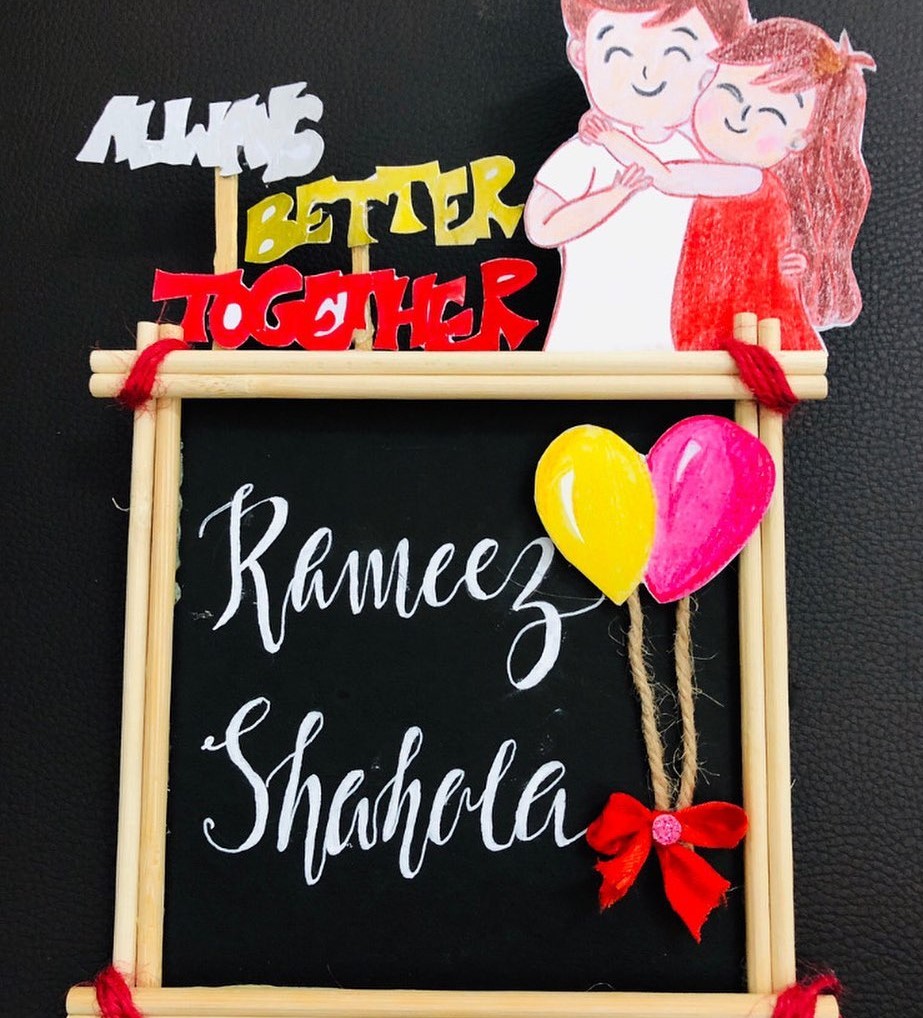 ALWAYS
BETTER
TOGETHER
Rameez
Shahala